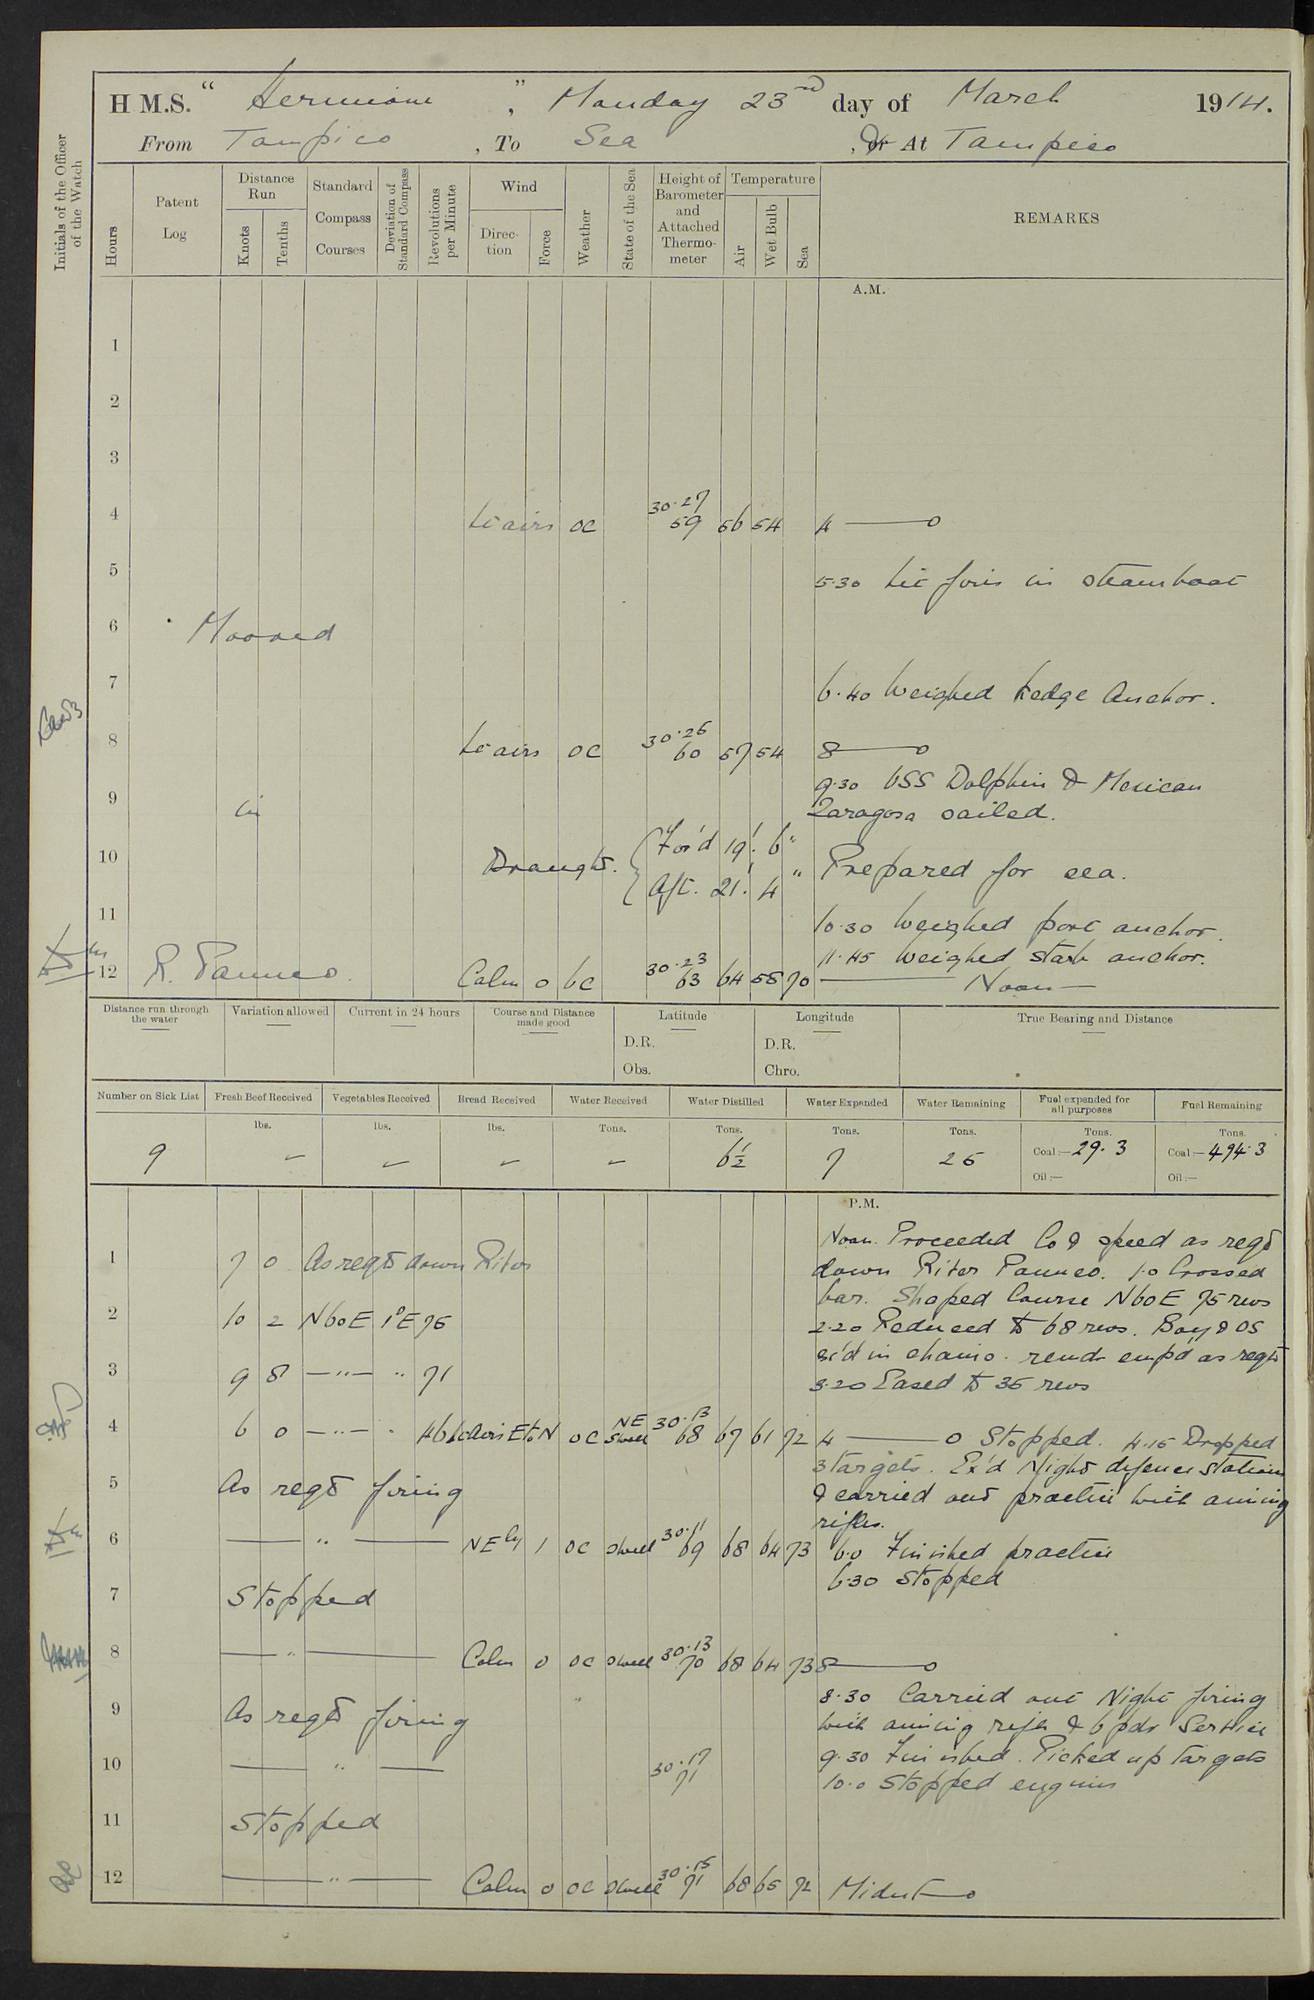 H M.S. " Hermione ", Monday 23rd day of March 1914.
From Tampico, To Sea, Or At Tampico
Initials of the Officer of the Watch
Hours
Patent Log
Distance Run
Knots
Tenths
Standard Compass Courses
Deviation of Standard Compass
Revolutions per Minute
Wind
Direction
Force
Weather
State of the Sea
Height of Barometer and Attached Thermometer
Temperature
Air
Wet Bulb
Sea
REMARKS
A.M.
1
2
3
4 Lt airs oc 30.27 59 56 54 4 —— o
5 5.30 Lit fires in steamboat
6 Moored
7 6.40 Weighed kedge Anchor.
8 Lt airs oc 30.26 60 57 54 8 —— o
9.30 USS Dolphin & Mexican
9 in Zaragosa sailed.
10 Draught. { For'd 19' 6" Prepared for sea.
Aft. 21' 4"
11 10.30 Weighed port anchor.
11.45 Weighed starb anchor.
12 R. Panuco. Calm 0 bc 30.23 63 64 58 70 —— Noon —
Distance run through the water
Variation allowed
Current in 24 hours
Course and Distance made good
Latitude
D.R.
Obs.
Longitude
D.R.
Chro.
True Bearing and Distance
Number on Sick List Fresh Beef Received Vegetables Received Bread Received Water Received Water Distilled Water Expended Water Remaining Fuel expended for all purposes Fuel Remaining
lbs. lbs. lbs. Tons. Tons. Tons. Tons. Tons. Tons.
9 – – – – 6½ 7 25 Coal:– 29.3 Coal:– 494.3
Oil:– Oil:–
P.M.
Noon. Proceeded Co & speed as reqd
1 7 0 As reqd down River down River Panuco. 1.0 Crossed
bar. Shaped Course N6oE 75 revs
2 10 2 N6oE 1°E 75 2.20 Reduced to 68 revs. Boy & OS
3 9 8 —"— " 71 as reqd
3.20 Eased to 35 revs
4 6 0 —"— " 46 Lt airs E to N oc NE Swell 30.13 68 67 61 72 4 —— o Stopped. 4.15 Dropped
3 targets. Ex'd Night defence stations
5 As reqd firing & carried out practice with aiming
rifles.
6 —— " —— NEly 1 oc swell 30.11 69 68 64 73 6.0 Finished practice
6.30 Stopped
7 Stopped
8 —— " —— Calm 0 oc swell 30.13 70 68 64 73 8 —— o
8.30 Carried out Night firing
9 As reqd firing with aiming rifles & 6 pdr Service
9.30 Finished. Picked up targets
10 —— " —— 30.17 71 10.0 Stopped engines
11 Stopped
12 —— " —— Calm 0 oc swell 30.15 71 68 65 72 Midnt — o